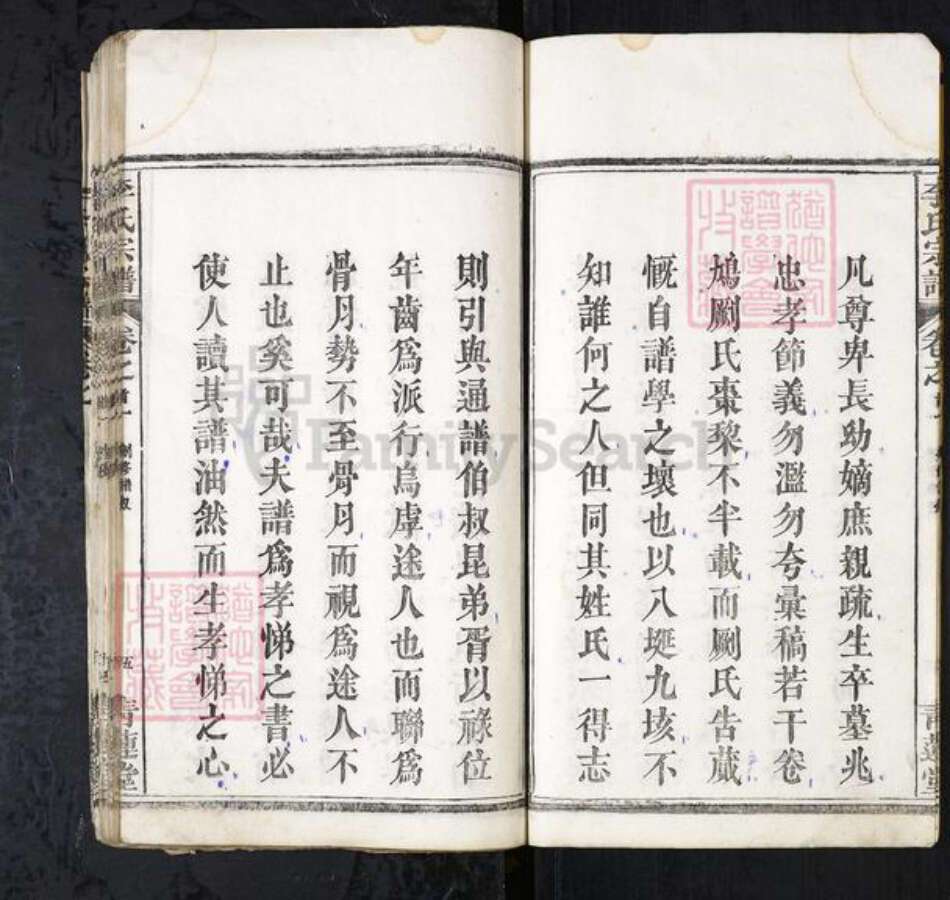 凡尊卑長助嫡庶親疏生卒墓兆
忠孝節義勿濫勿夸彙稿若干卷
鳩劂氏棗黎不半載而劂氏告蕆
慨自譜學之壞也以八埏九垓不
知誰何之人但同其姓氏一得志
則引與通譜伯叔昆弟胥以祿位
年齒爲派行烏虖途人也而聯爲
骨月勢不至骨月而視爲途人不
止也奚可哉夫譜爲孝悌之書必
使人讀其譜油然而生孝悌之心
李氏宗譜
卷之首一
五
青蓮堂
李氏宗譜
青蓮堂
猶他家譜學會收藏
猶他家譜學會收藏
FamilySearch